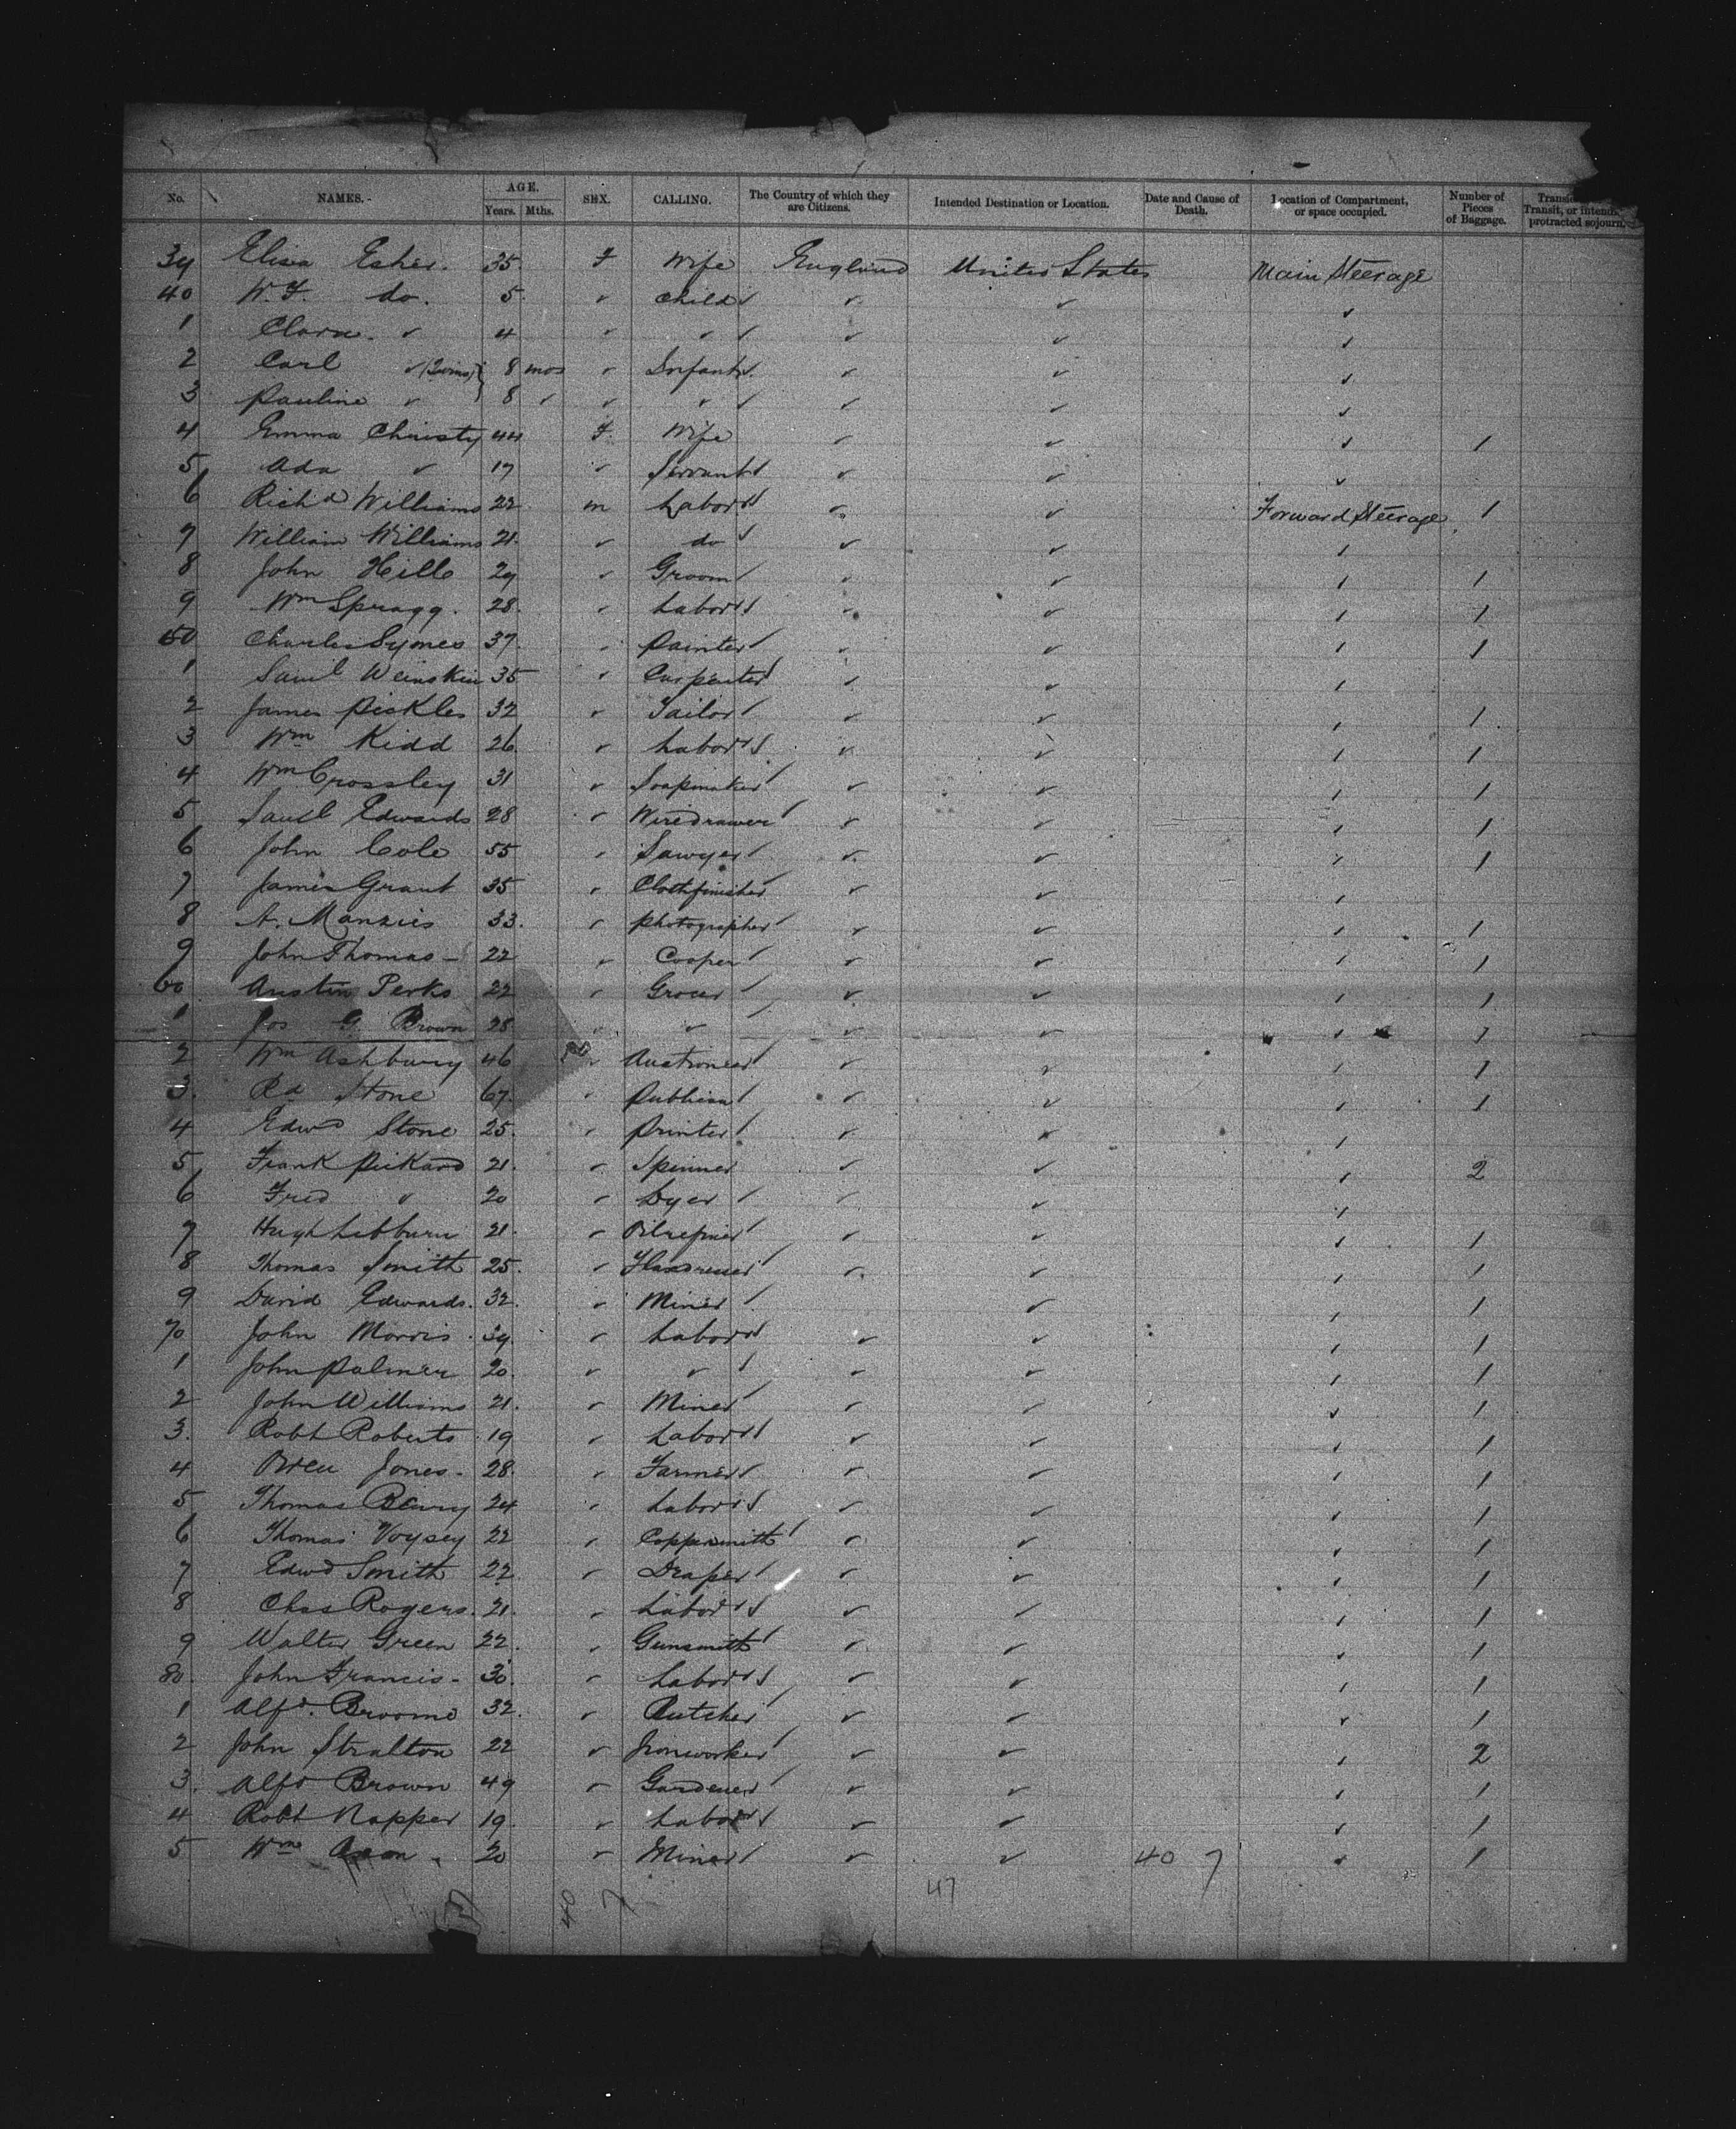 No. NAMES. AGE. Years. Mths. SEX. CALLING. The Country of which they are Citizens. Intended Destination or Location. Date and Cause of Death. Location of Compartment, or space occupied. Number of Pieces of Baggage. Transit, or intend protracted sojourn.
39 Elisea Esher. 35 F Wife England United States Main Steerage
40 W. F. do. 5 ✓ Child ✓ ✓ ✓
1 Clara ✓ 4 ✓ ✓ ✓ ✓ ✓
2 Carl ✓ (Twins) 8 mos ✓ Infant ✓ ✓ ✓
3 Pauline ✓ 8 ✓ ✓ ✓ ✓ ✓ ✓
4 Emma Christy 44 F. Wife ✓ ✓ ✓ 1
5 Ada ✓ 17 ✓ Servant ✓ ✓ ✓
6 Richd Williams 22 m Labor ✓ ✓ Forward Steerage 1
7 William Williams 21 ✓ do ✓ ✓ ✓
8 John Hills 29 ✓ Groom ✓ ✓ ✓ 1
9 Wm Spragg. 28 ✓ Labor ✓ ✓ ✓ 1
50 Charles Symes 37 ✓ Painter ✓ ✓ ✓ 1
1 Saml Weinskin 35 ✓ Carpenter ✓ ✓ ✓
2 James Pickles 32 ✓ Tailor ✓ ✓ ✓ 1
3 Wm Kidd 26 ✓ Labor ✓ ✓ ✓ 1
4 Wm Crossley 31 ✓ Soapmaker ✓ ✓ ✓ 1
5 Saml Edwards 28 ✓ Wiredrawer ✓ ✓ ✓ 1
6 John Cole 55 ✓ Sawyer ✓ ✓ ✓ 1
7 James Grant 35 ✓ Clothfinisher ✓ ✓ ✓
8 A. Manzies 33 ✓ Photographer ✓ ✓ ✓ 1
9 John Thomas 22 ✓ Cooper ✓ ✓ ✓ 1
60 Austin Perks 22 ✓ Grocer ✓ ✓ ✓ 1
1 Jos G. Brown 28 ✓ ✓ ✓ ✓ ✓ 1
2 Wm Ashbury 46 ✓ Auctioneer ✓ ✓ ✓ 1
3. Rd Stone 67 ✓ Publican ✓ ✓ ✓ 1
4 Edwd Stone 25 ✓ Printer ✓ ✓ ✓
5 Frank Pickard 21 ✓ Spinner ✓ ✓ ✓ 2
6 Fred ✓ 20 ✓ Dyer ✓ ✓ ✓
7 Hugh 21 ✓ Oilrefiner ✓ ✓ ✓ 1
8 Thomas Smith 25 ✓ ✓ ✓ ✓ 1
9 David Edwards. 32 ✓ Miner ✓ ✓ 1
70 John Morris. 39 ✓ Labor ✓ ✓ ✓ 1
1 John Palmer 20 ✓ ✓ ✓ ✓ ✓ 1
2 John Williams 21. ✓ Miner ✓ ✓ ✓ 1
3. Robt Roberts 19 ✓ Labor ✓ ✓ ✓ 1
4 Owen Jones 28 ✓ Farmer ✓ ✓ ✓ 1
5 Thomas 24 ✓ Labor ✓ ✓ ✓ 1
6 Thomas Voysey 22 ✓ Coppersmith ✓ ✓ ✓ 1
7 Edwd Smith 22 ✓ Draper ✓ ✓ ✓ 1
8 Chas Rogers. 21. ✓ Labor ✓ ✓ ✓ 1
9 Walter Green 22. ✓ Gunsmith ✓ ✓ ✓ 1
80. John Francis 30 ✓ Labor ✓ ✓ ✓ 1
1 Alfd. Broome 32. ✓ Butcher ✓ ✓ ✓ 1
2 John Stratton 22 ✓ Ironworker ✓ ✓ ✓ 2
3. Alfd Brown 49 ✓ Gardener ✓ ✓ ✓ 1
4 Robt Napper 19. ✓ Labor ✓ ✓ ✓ 1
5 Wm 20 ✓ Miner ✓ ✓ 40 7 ✓ 1
40 7 47